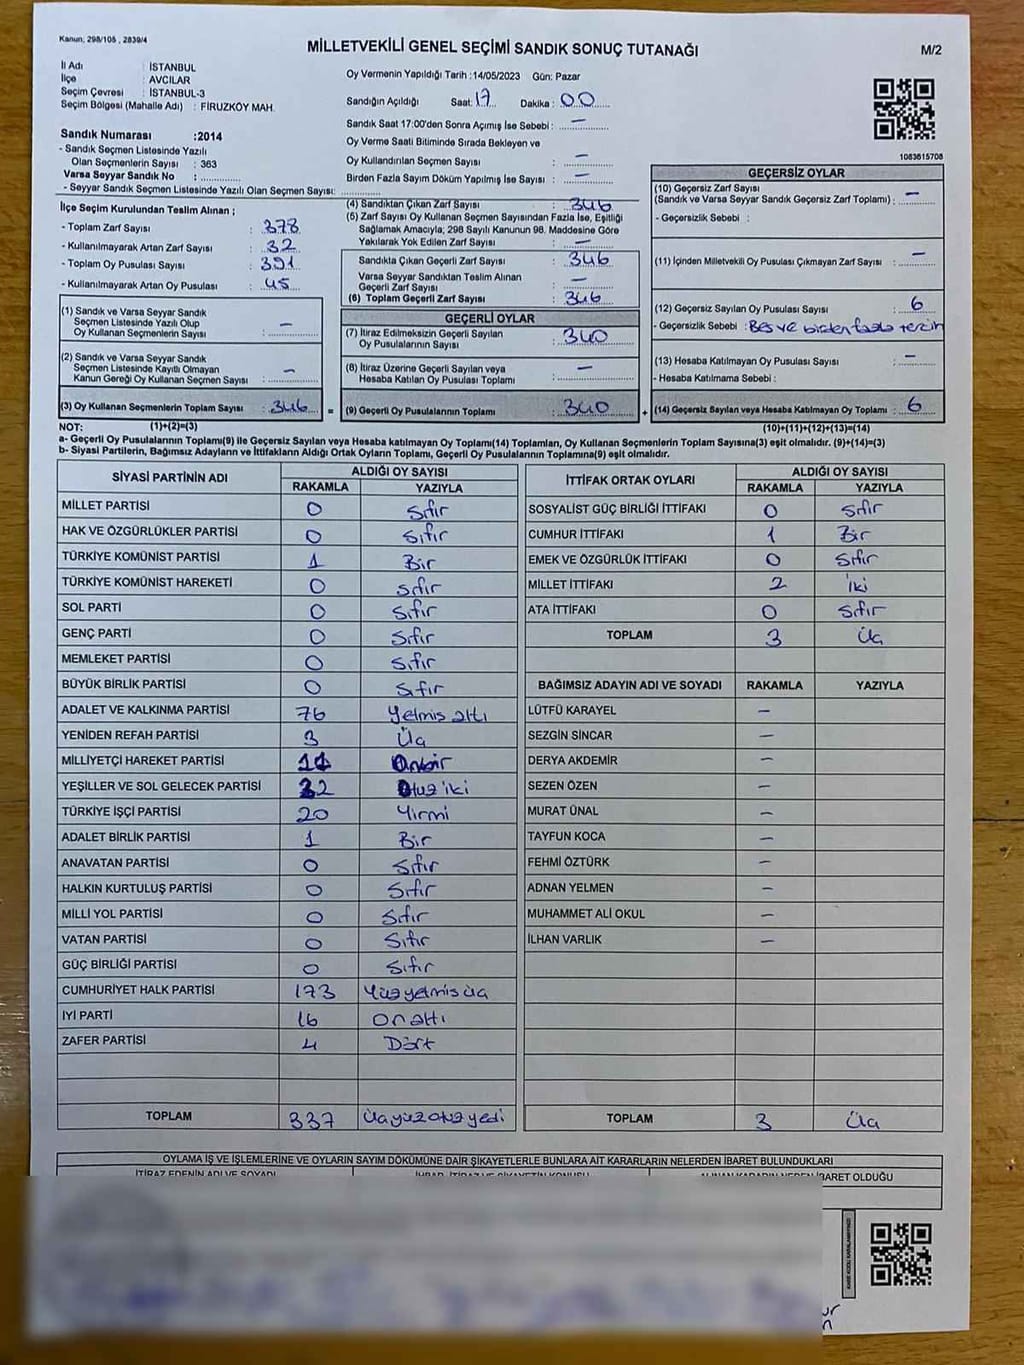 Kanun; 298/105 , 2839/4
MİLLETVEKİLİ GENEL SEÇİMİ SANDIK SONUÇ TUTANAĞI
M/2
İl Adı : İSTANBUL
İlçe : AVCILAR
Seçim Çevresi : İSTANBUL-3
Seçim Bölgesi (Mahalle Adı) : FİRUZKÖY MAH.
Sandık Numarası :2014
- Sandık Seçmen Listesinde Yazılı
Olan Seçmenlerin Sayısı : 363
Varsa Seyyar Sandık No :
- Seyyar Sandık Seçmen Listesinde Yazılı Olan Seçmen Sayısı:
Oy Vermenin Yapıldığı Tarih :14/05/2023 Gün: Pazar
Sandığın Açıldığı Saat: 17 Dakika : 00
Sandık Saat 17:00'den Sonra Açımış İse Sebebi : —
Oy Verme Saati Bitiminde Sırada Bekleyen ve
Oy Kullandırılan Seçmen Sayısı : —
Birden Fazla Sayım Döküm Yapılmış İse Sayısı : —
1083615708
İlçe Seçim Kurulundan Teslim Alınan ;
- Toplam Zarf Sayısı : 378
- Kullanılmayarak Artan Zarf Sayısı : 32
- Toplam Oy Pusulası Sayısı : 391
- Kullanılmayarak Artan Oy Pusulası : 45
(1) Sandık ve Varsa Seyyar Sandık
Seçmen Listesinde Yazılı Olup
Oy Kullanan Seçmenlerin Sayısı : —
(2) Sandık ve Varsa Seyyar Sandık
Seçmen Listesinde Kayıtlı Olmayan
Kanun Gereği Oy Kullanan Seçmen Sayısı : —
(3) Oy Kullanan Seçmenlerin Toplam Sayısı : 346
(4) Sandıktan Çıkan Zarf Sayısı : 346
(5) Zarf Sayısı Oy Kullanan Seçmen Sayısından Fazla İse, Eşitliği
Sağlamak Amacıyla; 298 Sayılı Kanunun 98. Maddesine Göre
Yakılarak Yok Edilen Zarf Sayısı : —
Sandıkta Çıkan Geçerli Zarf Sayısı : 346
Varsa Seyyar Sandıktan Teslim Alınan
Geçerli Zarf Sayısı : —
(6) Toplam Geçerli Zarf Sayısı : 346
GEÇERLİ OYLAR
(7) İtiraz Edilmeksizin Geçerli Sayılan
Oy Pusulalarının Sayısı : 340
(8) İtiraz Üzerine Geçerli Sayılan veya
Hesaba Katılan Oy Pusulası Toplamı : —
= (9) Geçerli Oy Pusulalarının Toplamı : 340
GEÇERSİZ OYLAR
(10) Geçersiz Zarf Sayısı
(Sandık ve Varsa Seyyar Sandık Geçersiz Zarf Toplamı) : —
- Geçersizlik Sebebi :
(11) İçinden Milletvekili Oy Pusulası Çıkmayan Zarf Sayısı : —
(12) Geçersiz Sayılan Oy Pusulası Sayısı : 6
- Geçersizlik Sebebi : Boş ve birden fazla tercih
(13) Hesaba Katılmayan Oy Pusulası Sayısı : —
- Hesaba Katılmama Sebebi :
+ (14) Geçersiz Sayılan veya Hesaba Katılmayan Oy Toplamı : 6
NOT: (1)+(2)=(3)
(10)+(11)+(12)+(13)=(14)
a- Geçerli Oy Pusulalarının Toplamı(9) ile Geçersiz Sayılan veya Hesaba katılmayan Oy Toplamı(14) Toplamları, Oy Kullanan Seçmenlerin Toplam Sayısına(3) eşit olmalıdır. (9)+(14)=(3)
b- Siyasi Partilerin, Bağımsız Adayların ve İttifakların Aldığı Ortak Oyların Toplamı, Geçerli Oy Pusulalarının Toplamına(9) eşit olmalıdır.
SİYASİ PARTİNİN ADI ALDIĞI OY SAYISI
RAKAMLA YAZIYLA
MİLLET PARTİSİ 0 Sıfır
HAK VE ÖZGÜRLÜKLER PARTİSİ 0 Sıfır
TÜRKİYE KOMÜNİST PARTİSİ 1 Bir
TÜRKİYE KOMÜNİST HAREKETİ 0 Sıfır
SOL PARTİ 0 Sıfır
GENÇ PARTİ 0 Sıfır
MEMLEKET PARTİSİ 0 Sıfır
BÜYÜK BİRLİK PARTİSİ 0 Sıfır
ADALET VE KALKINMA PARTİSİ 76 Yetmiş altı
YENİDEN REFAH PARTİSİ 3 Üç
MİLLİYETÇİ HAREKET PARTİSİ 11 Onbir
YEŞİLLER VE SOL GELECEK PARTİSİ 32 Otuz iki
TÜRKİYE İŞÇİ PARTİSİ 20 Yirmi
ADALET BİRLİK PARTİSİ 1 Bir
ANAVATAN PARTİSİ 0 Sıfır
HALKIN KURTULUŞ PARTİSİ 0 Sıfır
MİLLİ YOL PARTİSİ 0 Sıfır
VATAN PARTİSİ 0 Sıfır
GÜÇ BİRLİĞİ PARTİSİ 0 Sıfır
CUMHURİYET HALK PARTİSİ 173 Yüzyetmiş üç
İYİ PARTİ 16 Onaltı
ZAFER PARTİSİ 4 Dört
TOPLAM 337 Üçyüz otuz yedi
İTTİFAK ORTAK OYLARI ALDIĞI OY SAYISI
RAKAMLA YAZIYLA
SOSYALİST GÜÇ BİRLİĞİ İTTİFAKI 0 Sıfır
CUMHUR İTTİFAKI 1 Bir
EMEK VE ÖZGÜRLÜK İTTİFAKI 0 Sıfır
MİLLET İTTİFAKI 2 İki
ATA İTTİFAKI 0 Sıfır
TOPLAM 3 Üç
BAĞIMSIZ ADAYIN ADI VE SOYADI RAKAMLA YAZIYLA
LÜTFÜ KARAYEL —
SEZGİN SİNCAR —
DERYA AKDEMİR —
SEZEN ÖZEN —
MURAT ÜNAL —
TAYFUN KOCA —
FEHMİ ÖZTÜRK —
ADNAN YELMEN —
MUHAMMET ALİ OKUL —
İLHAN VARLIK —
TOPLAM 3 Üç
OYLAMA İŞ VE İŞLEMLERİNE VE OYLARIN SAYIM DÖKÜMÜNE DAİR ŞİKAYETLERLE BUNLARA AİT KARARLARIN NELERDEN İBARET BULUNDUKLARI
İTİRAZ EDENİN ADI VE SOYADI İHBAR, İTİRAZ VE ŞİKAYETİN KONUSU ALINAN KARARIN NEDEN İBARET OLDUĞU